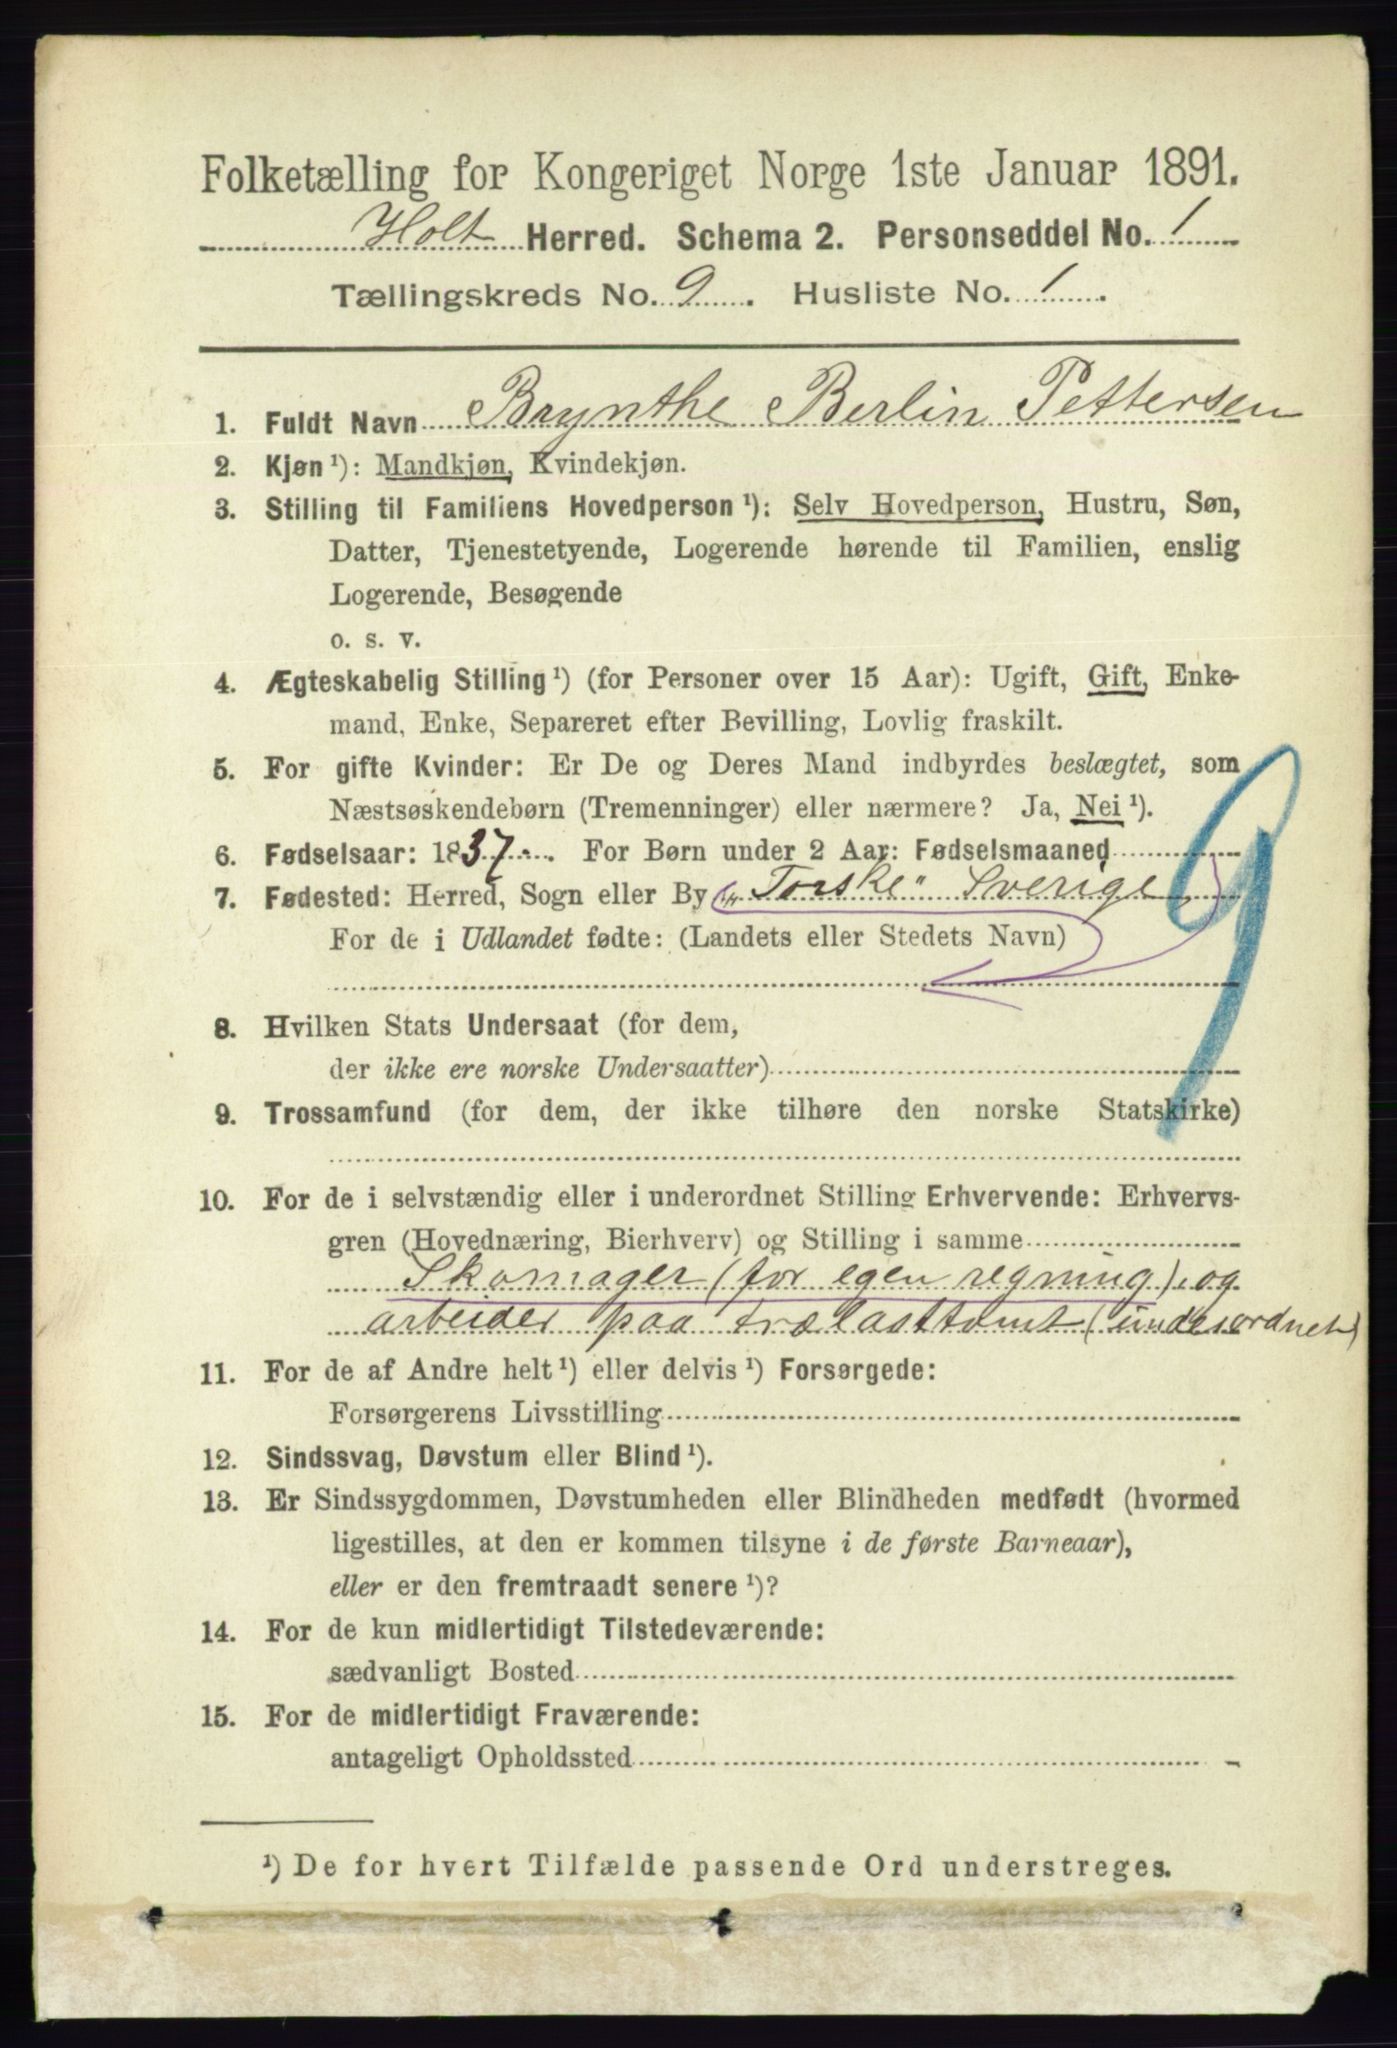 Folketælling for Kongeriget Norge 1ste Januar 1891.
Holt Herred. Schema 2. Personseddel No. 1
Tællingskreds No. 9. Husliste No. 1.
1. Fuldt Navn Brynthe Berlin Pettersen
2. Kjøn ¹): Mandkjøn, Kvindekjøn.
3. Stilling til Familiens Hovedperson ¹): Selv Hovedperson, Hustru, Søn,
Datter, Tjenestetyende, Logerende hørende til Familien, enslig
Logerende, Besøgende
o. s. v.
4. Ægteskabelig Stilling ¹) (for Personer over 15 Aar): Ugift, Gift, Enke-
mand, Enke, Separeret efter Bevilling, Lovlig fraskilt.
5. For gifte Kvinder: Er De og Deres Mand indbyrdes beslægtet, som
Næstsøskendebørn (Tremenninger) eller nærmere? Ja, Nei ¹).
6. Fødselsaar: 1837. For Børn under 2 Aar: Fødselsmaaned
7. Fødested: Herred, Sogn eller By „Torske" Sverige
For de i Udlandet fødte: (Landets eller Stedets Navn)
9
8. Hvilken Stats Undersaat (for dem,
der ikke ere norske Undersaatter)
9. Trossamfund (for dem, der ikke tilhøre den norske Statskirke)
10. For de i selvstændig eller i underordnet Stilling Erhvervende: Erhvervs-
gren (Hovednæring, Bierhverv) og Stilling i samme
Skomager (for egen regning), og
arbeider paa trælasttomt (underordnet)
11. For de af Andre helt ¹) eller delvis ¹) Forsørgede:
Forsørgerens Livsstilling
12. Sindssvag, Døvstum eller Blind ¹).
13. Er Sindssygdommen, Døvstumheden eller Blindheden medfødt (hvormed
ligestilles, at den er kommen tilsyne i de første Barneaar),
eller er den fremtraadt senere ¹)?
14. For de kun midlertidigt Tilstedeværende:
sædvanligt Bosted
15. For de midlertidigt Fraværende:
antageligt Opholdssted
¹) De for hvert Tilfælde passende Ord understreges.